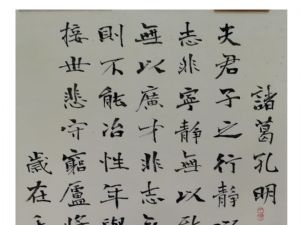 諸葛孔明
夫君子之行靜以
志非寧靜無以致
無以廣才非志無
則不能冶性年與
接世悲守窮廬將
歲在